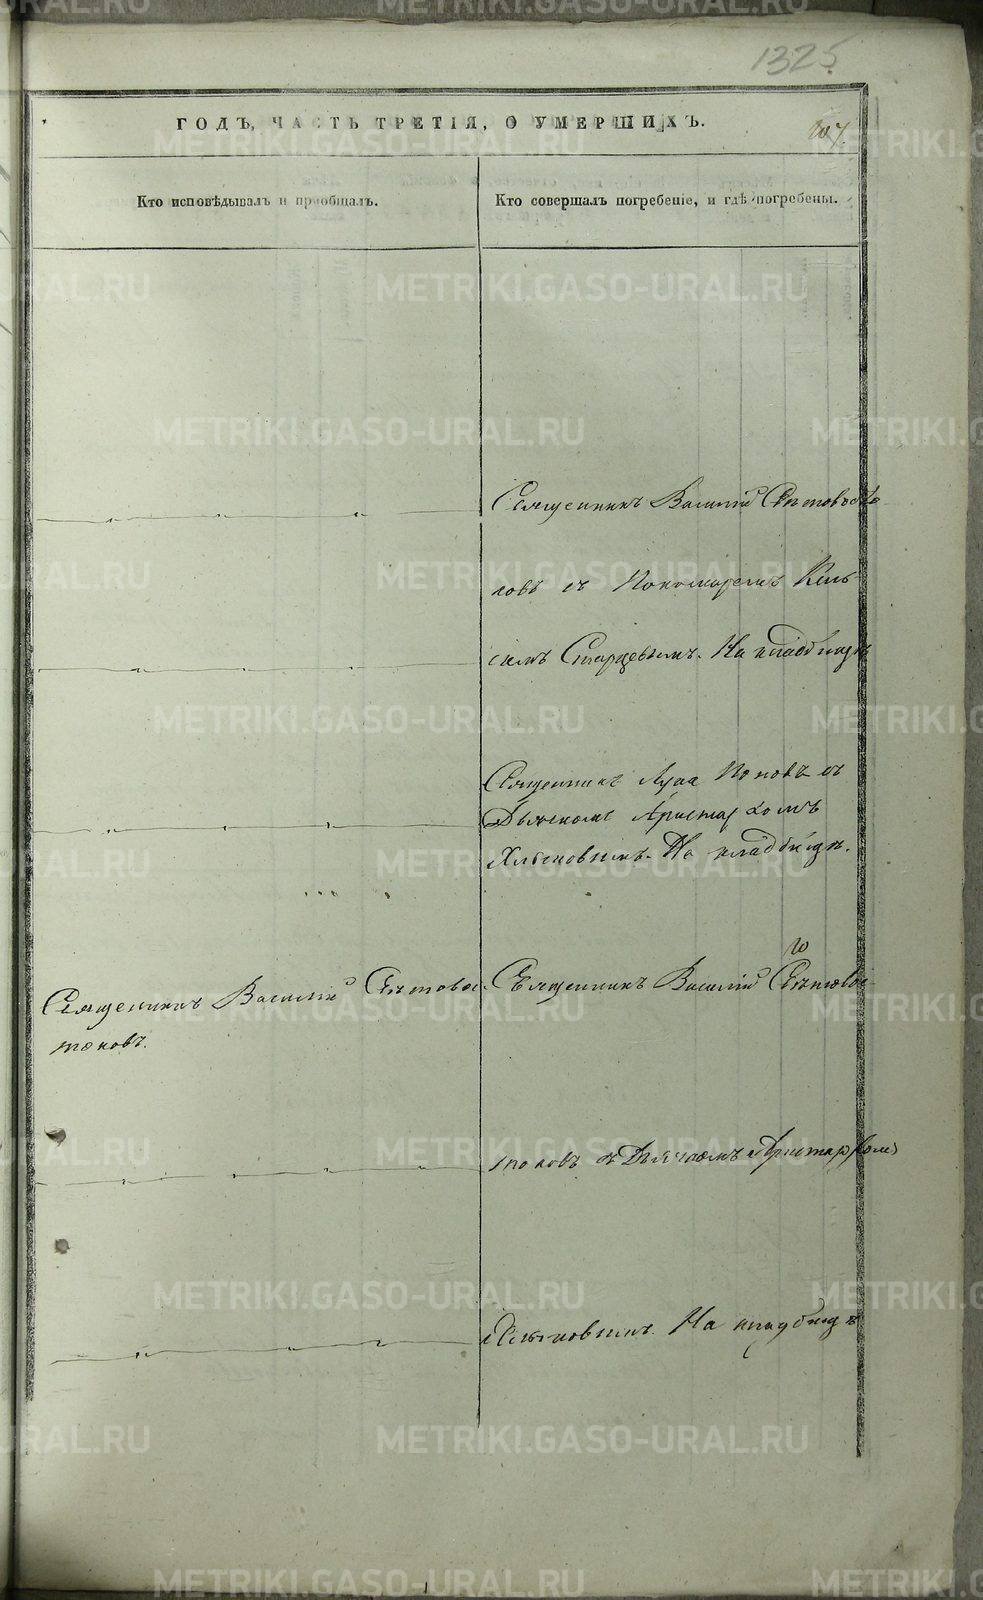 1325
ГОДЪ, ЧАСТЬ ТРЕТІЯ, О УМЕРШИХЪ.
Кто исповѣдывалъ и пріобщалъ.
Кто совершалъ погребеніе, и гдѣ погребены.
Священникъ Василій
ковъ съ Пономаремъ
Старцевымъ. На кладбищѣ
Священникъ Лука Поповъ съ
Дьячкомъ Аристархомъ
Хлыновымъ. На кладбищѣ.
Священникъ Василій Свѣтовос
токовъ.
Священникъ Василій Свѣтовос
токовъ съ Дьячкомъ Аристархомъ
Хлыновымъ. На кладбищѣ
METRIKI.GASO-URAL.RU